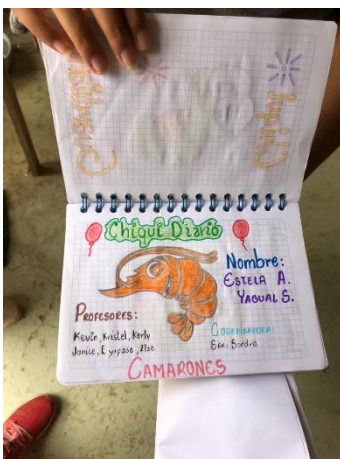 Chiqui Diario
Nombre:
ESTELA A.
YAGUAL S.
PROFESORES:
Kevin, Kristel, Kerly
Janice,
COORDINADORA:
Sandra
CAMARONES